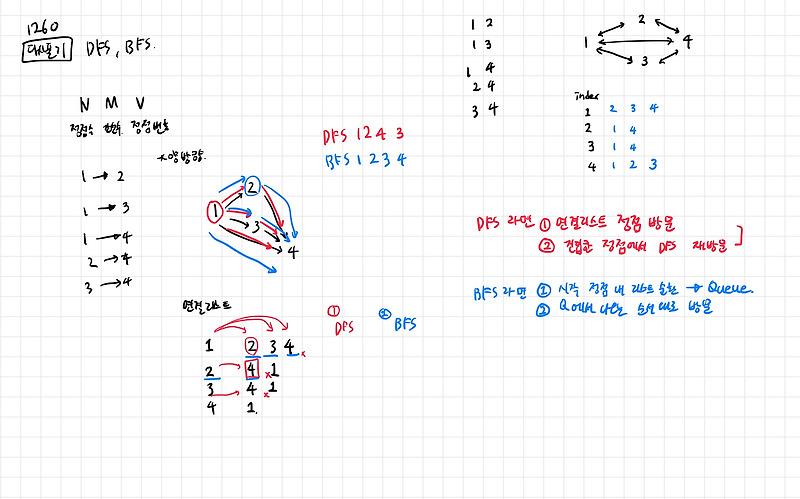 1260
DFS, BFS.
N M V
정점수 간선수 정점번호
*양방향
1 → 2
1 → 3
1 → 4
2 → 4
3 → 4
DFS 1 2 4 3
BFS 1 2 3 4
1 2 3 4
연결리스트
① DFS
② BFS
1 2 3 4 x
2 4 x 1
3 4 x 1
4 1.
1 2
1 3
1 4
2 4
3 4
1 2 3 4
index
1 2 3 4
2 1 4
3 1 4
4 1 2 3
DFS 라면 ① 연결리스트 정점 방문
② 정점에서 DFS 재방문
BFS 라면 ① 시작 정점 내 리스트 순환 → Queue.
② Q에서 나온 순서대로 방문